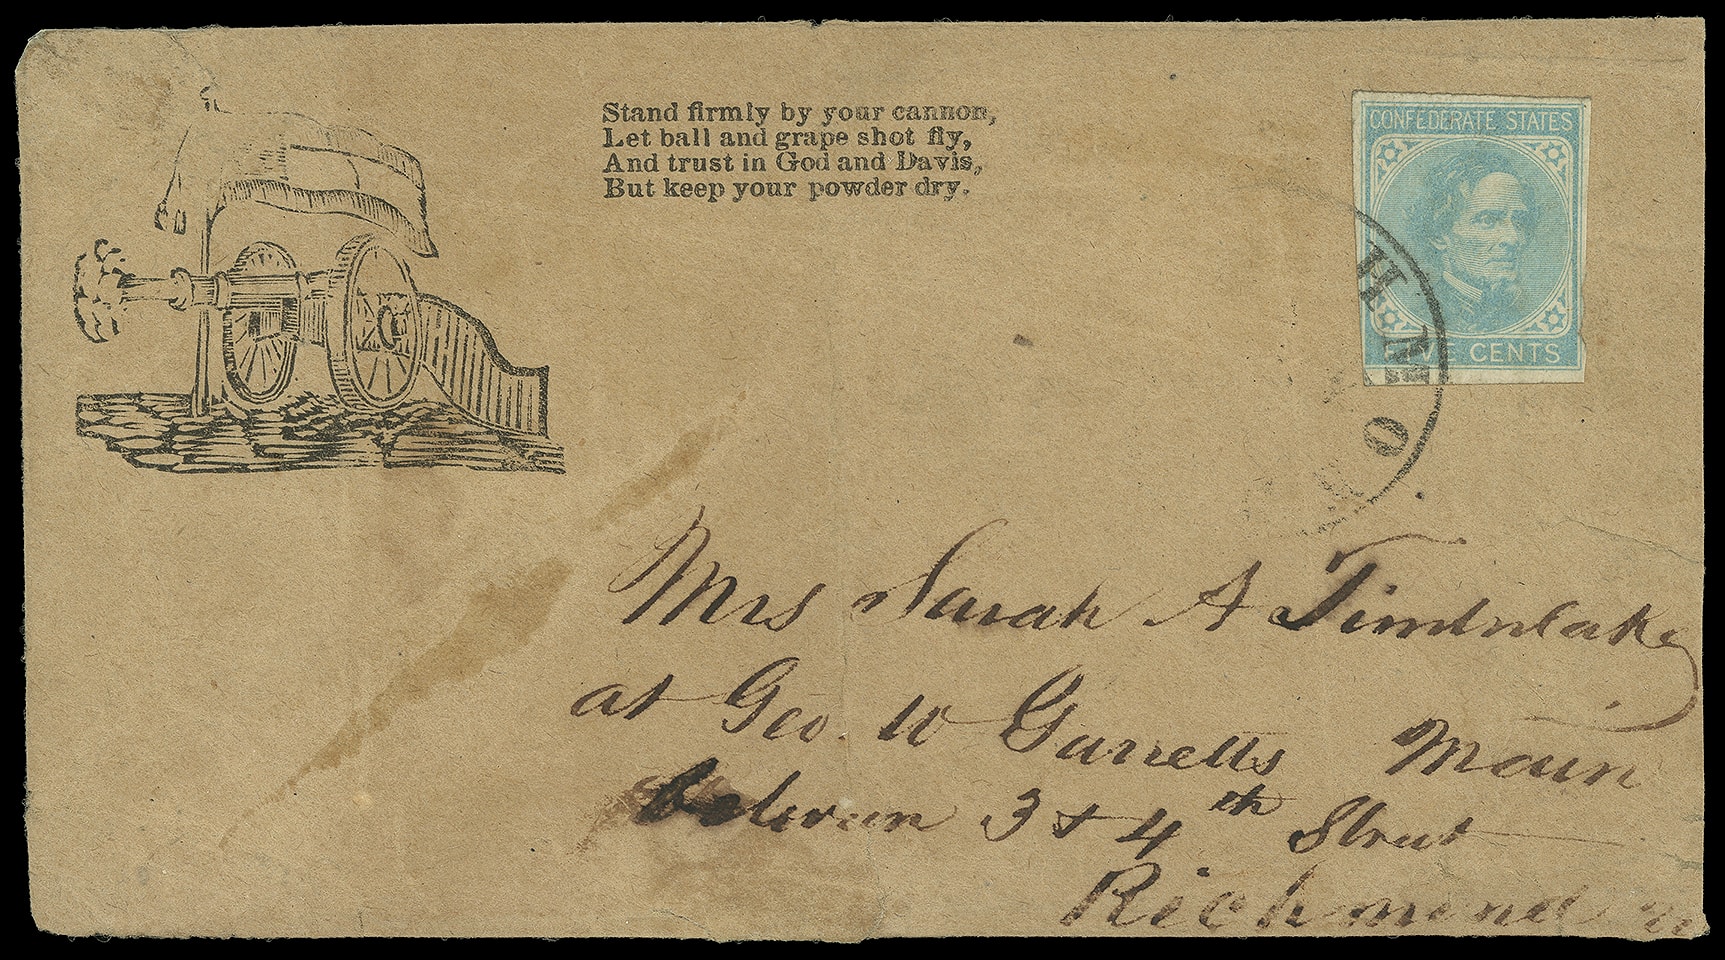 Stand firmly by your cannon,
Let ball and grape shot fly,
And trust in God and Davis,
But keep your powder dry.
CONFEDERATE STATES
FIVE CENTS
H M O
Mrs Sarah A Timberlake
at Geo. W Garretts Main
between 3 & 4th Street
Richmond